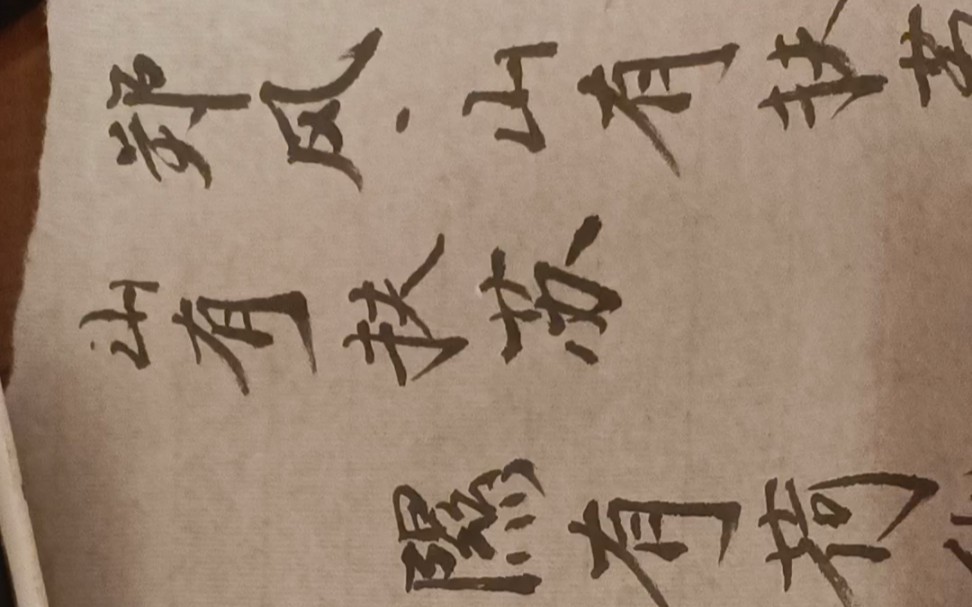 郑风·山有扶苏
山有扶苏
隰有荷